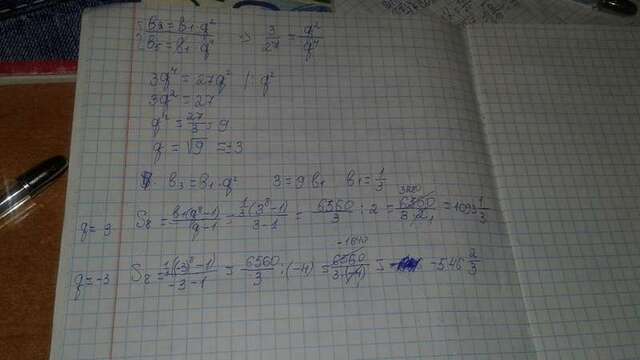 b₃ = b₁·q²
b₅ = b₁·q⁴ => 3/27 = q²/q⁴
3q⁴ = 27q² |: q²
3q² = 27
q² = 27/3 = 9
q = √9 = ±3
b₃ = b₁·q² 3 = 9b₁ b₁ = 1/3
q = 3 S₈ = b₁(q⁸-1)/q-1 = 1/3(3⁸-1)/3-1 = 6560/3 : 2 = 6560/3·2 = 1093 1/3
q = -3 S₈ = 1/3((-3)⁸-1)/-3-1 = 6560/3 : (-4) = 6560/3·(-4) = -546 2/3